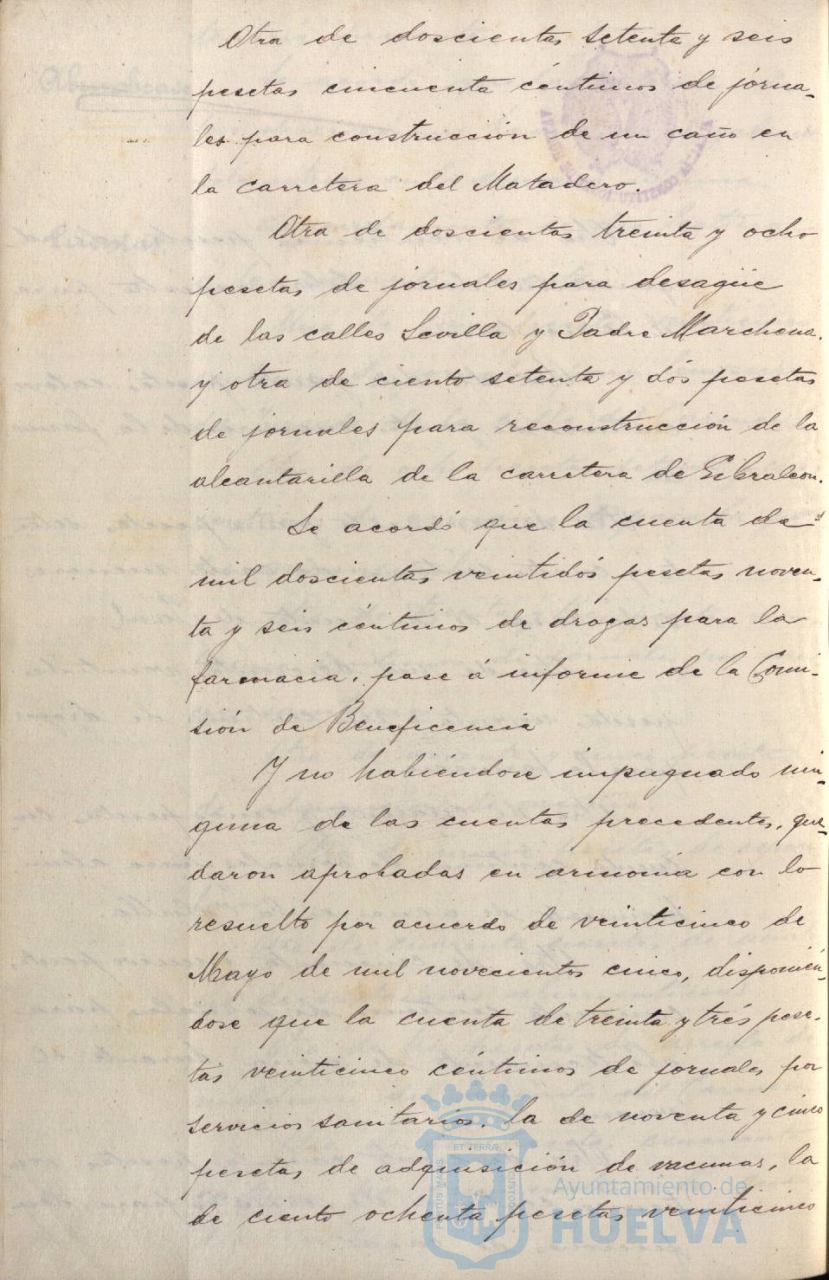 Otra de doscientas setenta y seis
pesetas cincuenta céntimos de jorna-
les para construcción de un caño en
la carretera del Matadero.
Otra de doscientas treinta y ocho
pesetas de jornales para desagüe
de las calles Sevilla y Padre Marchena.
y otra de ciento setenta y dós pesetas
de jornales para reconstrucción de la
alcantarilla de la carretera de Gibraleon.
Se acordó que la cuenta de
mil doscientas veintidós pesetas noven-
ta y seis céntimos de drogas para la
farmacia, pase á informe de la Comi-
sión de Beneficencia
Y no habiéndose impugnado nin-
guna de las cuentas precedentes, que-
daron aprobadas en armonia con lo
resuelto por acuerdo de veinticinco de
Mayo de mil novecientos cinco, disponién-
dose que la cuenta de treinta y trés pese-
tas veinticinco céntimos de jornales por
servicios sanitarios, la de noventa y cinco
pesetas de adquisición de vacunas, la
de ciento ochenta pesetas veinticinco
ET TERRÆ
Ayuntamiento de
HUELVA